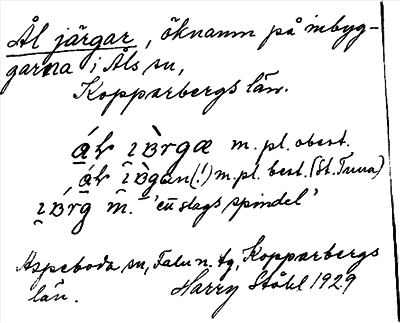 Ål järgar, öknamn på inbyg-
garna i Åls sn,
Kopparbergs län.
m. pl. obest.
(!) m. pl. best. (St. Tuna)
m. 'en slags spindel'
Aspeboda sn, Falu n. tg, Kopparbergs
län. Harry Ståhl 1929